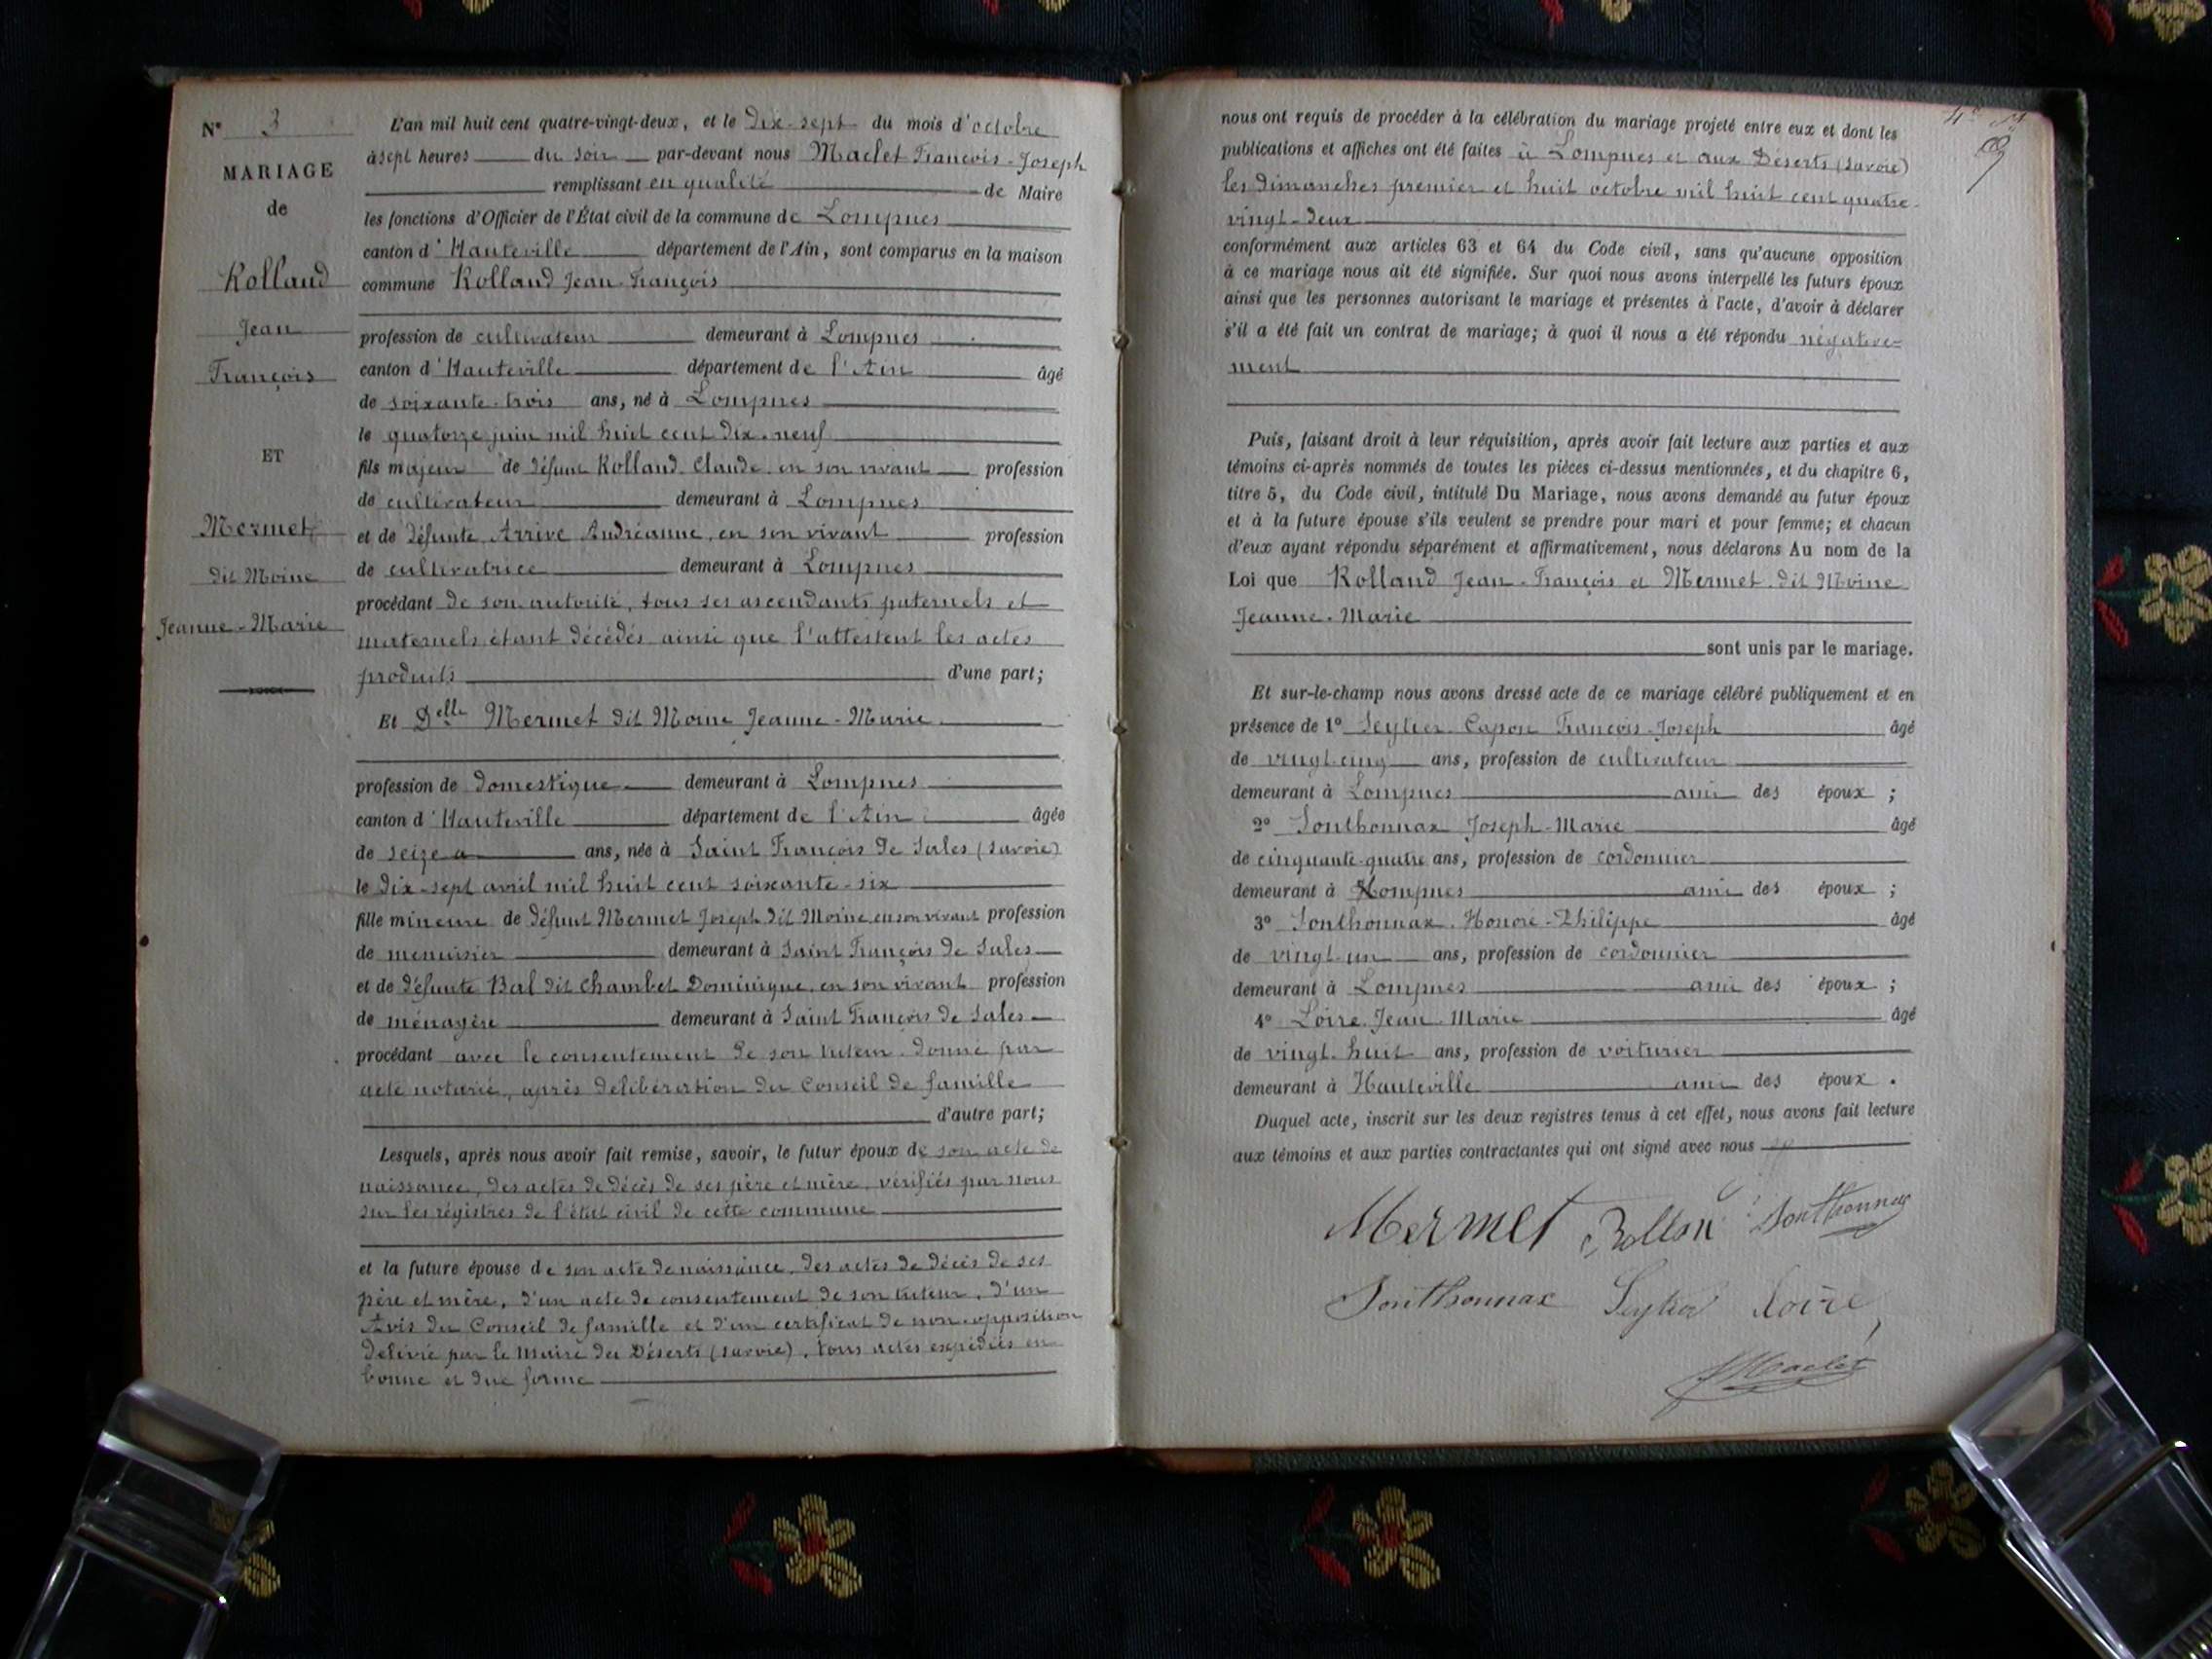 N° 3
MARIAGE
de
Rolland
Jean
François
ET
Mermet
dit Moine
Jeanne-Marie
L'an mil huit cent quatre-vingt-deux, et le dix-sept du mois d'octobre
à sept heures du soir par-devant nous Maclet François-Joseph
remplissant en qualité de Maire
les fonctions d'Officier de l'État civil de la commune de Lompnes
canton d'Hauteville département de l'Ain, sont comparus en la maison
commune Rolland Jean-François
profession de cultivateur demeurant à Lompnes
canton d'Hauteville département de l'Ain âgé
de soixante-trois ans, né à Lompnes
le quatorze juin mil huit cent dix-neuf
fils majeur de défunt Rolland Claude, en son vivant profession
de cultivateur demeurant à Lompnes
et de défunte Arrive Andréanne, en son vivant profession
de cultivatrice demeurant à Lompnes
procédant de son autorité, tous ses ascendants paternels et
maternels étant décédés ainsi que l'attestent les actes
produits d'une part;
Et Delle Mermet dit Moine Jeanne-Marie
profession de domestique demeurant à Lompnes
canton d'Hauteville département de l'Ain âgée
de seize ans, née à Saint François de Sales (Savoie)
le dix-sept avril mil huit cent soixante-six
fille mineure de défunt Mermet Joseph dit Moine, en son vivant profession
de menuisier demeurant à Saint François de Sales
et de défunte Bal dit Chambet Dominique, en son vivant profession
de ménagère demeurant à Saint François de Sales
procédant avec le consentement de son tuteur donné par
acte notarié, après delibération du Conseil de famille
d'autre part;
Lesquels, après nous avoir fait remise, savoir, le futur époux de son acte de
naissance, des actes de décès de ses père et mère, vérifiés par nous
sur les régistres de l'état civil de cette commune
et la future épouse de son acte de naissance, des actes de décès de ses
père et mère, d'un acte de consentement de son tuteur, d'un
Avis du Conseil de famille et d'un certificat de non-opposition
délivré par le Maire des Déserts (Savoie), tous actes expédiés en
bonne et due forme
nous ont requis de procéder à la célébration du mariage projeté entre eux et dont les
publications et affiches ont été faites à Lompnes et aux Déserts (Savoie)
les dimanches premier et huit octobre mil huit cent quatre-
vingt-deux
conformément aux articles 63 et 64 du Code civil, sans qu'aucune opposition
à ce mariage nous ait été signifiée. Sur quoi nous avons interpellé les futurs époux
ainsi que les personnes autorisant le mariage et présentes à l'acte, d'avoir à déclarer
s'il a été fait un contrat de mariage; à quoi il nous a été répondu négative=
ment
Puis, faisant droit à leur réquisition, après avoir fait lecture aux parties et aux
témoins ci-après nommés de toutes les pièces ci-dessus mentionnées, et du chapitre 6,
titre 5, du Code civil, intitulé Du Mariage, nous avons demandé au futur époux
et à la future épouse s'ils veulent se prendre pour mari et pour femme; et chacun
d'eux ayant répondu séparément et affirmativement, nous déclarons Au nom de la
Loi que Rolland Jean-François et Mermet dit Moine
Jeanne-Marie
sont unis par le mariage.
Et sur-le-champ nous avons dressé acte de ce mariage célébré publiquement et en
présence de 1° Seytier-Capon François-Joseph âgé
de vingt-cinq ans, profession de cultivateur
demeurant à Lompnes ami des époux ;
2° Sonthonnax Joseph-Marie âgé
de cinquante-quatre ans, profession de cordonnier
demeurant à Lompnes ami des époux ;
3° Sonthonnax Honoré-Philippe âgé
de vingt-un ans, profession de cordonnier
demeurant à Lompnes ami des époux ;
4° Loire Jean-Marie âgé
de vingt-huit ans, profession de voiturier
demeurant à Hauteville ami des époux .
Duquel acte, inscrit sur les deux registres tenus à cet effet, nous avons fait lecture
aux témoins et aux parties contractantes qui ont signé avec nous
Mermet Sonthonnax
Sonthonnax Seytier Loire
Maclet